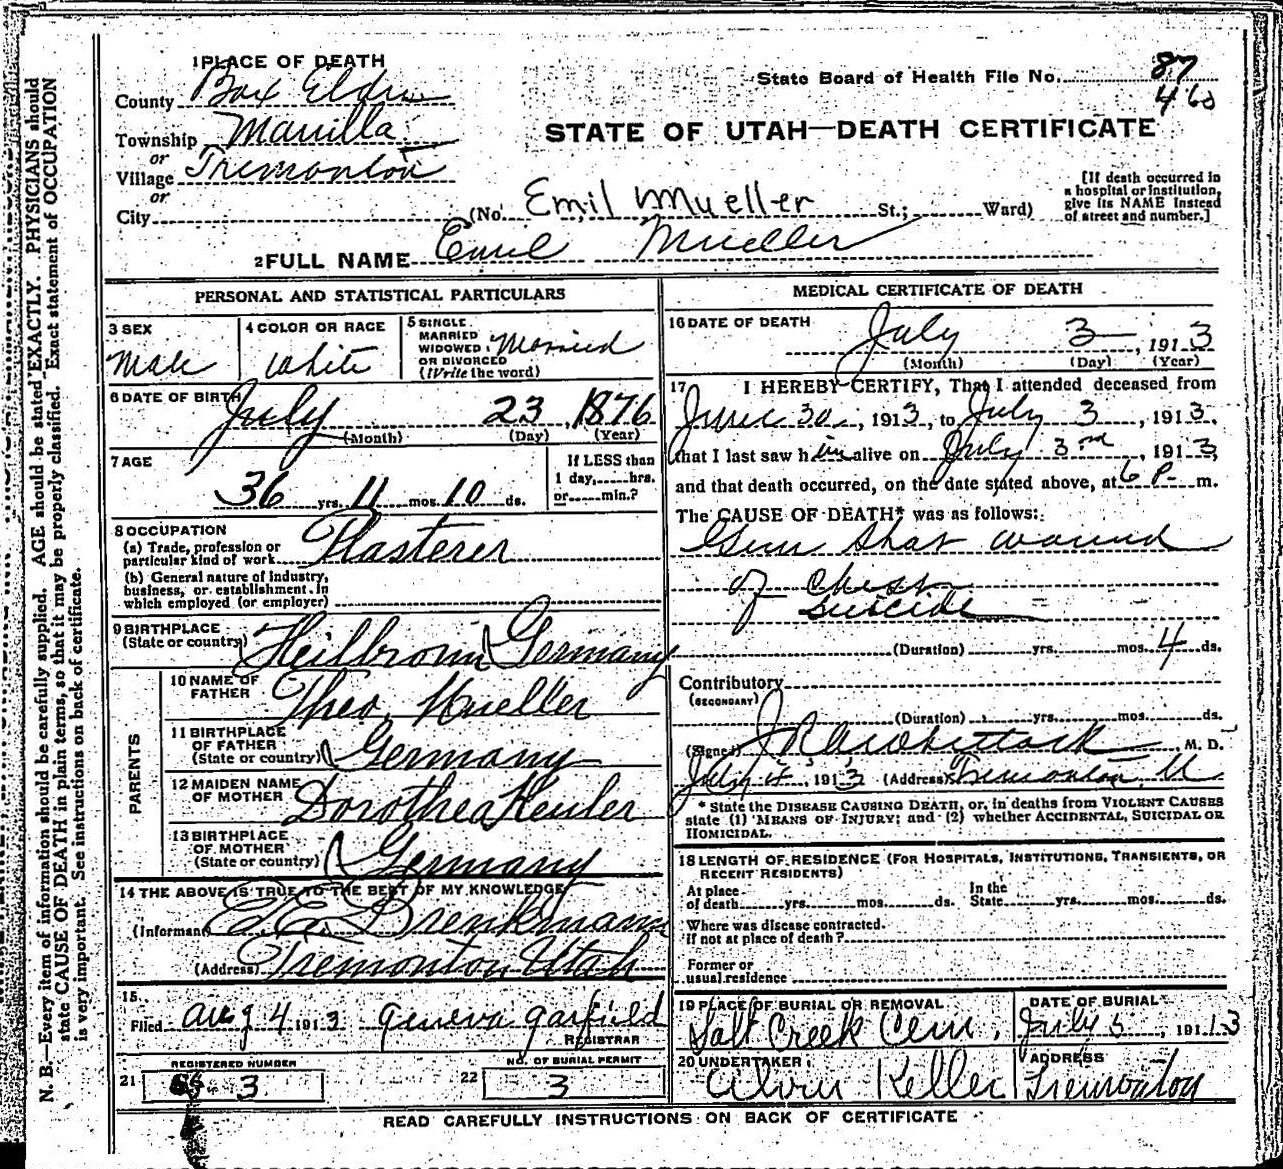 1 PLACE OF DEATH
County Box Elder
Township Manilla
or
Village Tremonton
or
City (No. Emil Mueller St.; Ward)
State Board of Health File No. 87
460
STATE OF UTAH—DEATH CERTIFICATE
[If death occurred in
a hospital or institution,
give its NAME instead
of street and number.]
2 FULL NAME Emil Mueller
PERSONAL AND STATISTICAL PARTICULARS
3 SEX
Male
4 COLOR OR RACE
White
5 SINGLE
MARRIED
WIDOWED
OR DIVORCED
(Write the word)
Married
6 DATE OF BIRTH
July 23, 1876
(Month) (Day) (Year)
7 AGE
36 yrs. 11 mos. 10 ds.
If LESS than
1 day, hrs.
or min.?
8 OCCUPATION
(a) Trade, profession or
particular kind of work Plasterer
(b) General nature of industry,
business, or establishment in
which employed (or employer)
9 BIRTHPLACE
(State or country) Heilbronn Germany
PARENTS
10 NAME OF
FATHER Theo. Mueller
11 BIRTHPLACE
OF FATHER
(State or country) Germany
12 MAIDEN NAME
OF MOTHER Dorothea
13 BIRTHPLACE
OF MOTHER
(State or country) Germany
14 THE ABOVE IS TRUE TO THE BEST OF MY KNOWLEDGE
(Informant) E.E. Drenkmann
(Address) Tremonton Utah
15
Filed Aug 4 1913 Geneva Garfield
REGISTRAR
21 REGISTERED NUMBER
3
22 NO. OF BURIAL PERMIT
3
MEDICAL CERTIFICATE OF DEATH
16 DATE OF DEATH
July 3, 1913
(Month) (Day) (Year)
17 I HEREBY CERTIFY, That I attended deceased from
June 30, 1913, to July 3, 1913,
that I last saw him alive on July 3rd, 1913,
and that death occurred, on the date stated above, at 6 P. m.
The CAUSE OF DEATH* was as follows:
Gun shot wound
of chest
Suicide
(Duration) yrs. mos. 4 ds.
Contributory
(SECONDARY)
(Duration) yrs. mos. ds.
(Signed) M. D.
July 1913 (Address) Tremonton, U
* State the DISEASE CAUSING DEATH, or, in deaths from VIOLENT CAUSES
state (1) MEANS OF INJURY; and (2) whether ACCIDENTAL, SUICIDAL OR
HOMICIDAL.
18 LENGTH OF RESIDENCE (FOR HOSPITALS, INSTITUTIONS, TRANSIENTS, OR
RECENT RESIDENTS)
At place
of death yrs. mos. ds.
In the
State yrs. mos. ds.
Where was disease contracted.
if not at place of death?
Former or
usual residence
19 PLACE OF BURIAL OR REMOVAL
Salt Creek Cem.
DATE OF BURIAL
July 5, 1913
20 UNDERTAKER
Alvin Keller
ADDRESS
Tremonton
READ CAREFULLY INSTRUCTIONS ON BACK OF CERTIFICATE
N. B.—Every item of information should be carefully supplied. AGE should be stated EXACTLY. PHYSICIANS should
state CAUSE OF DEATH in plain terms, so that it may be properly classified. Exact statement of OCCUPATION
is very important. See instructions on back of certificate.